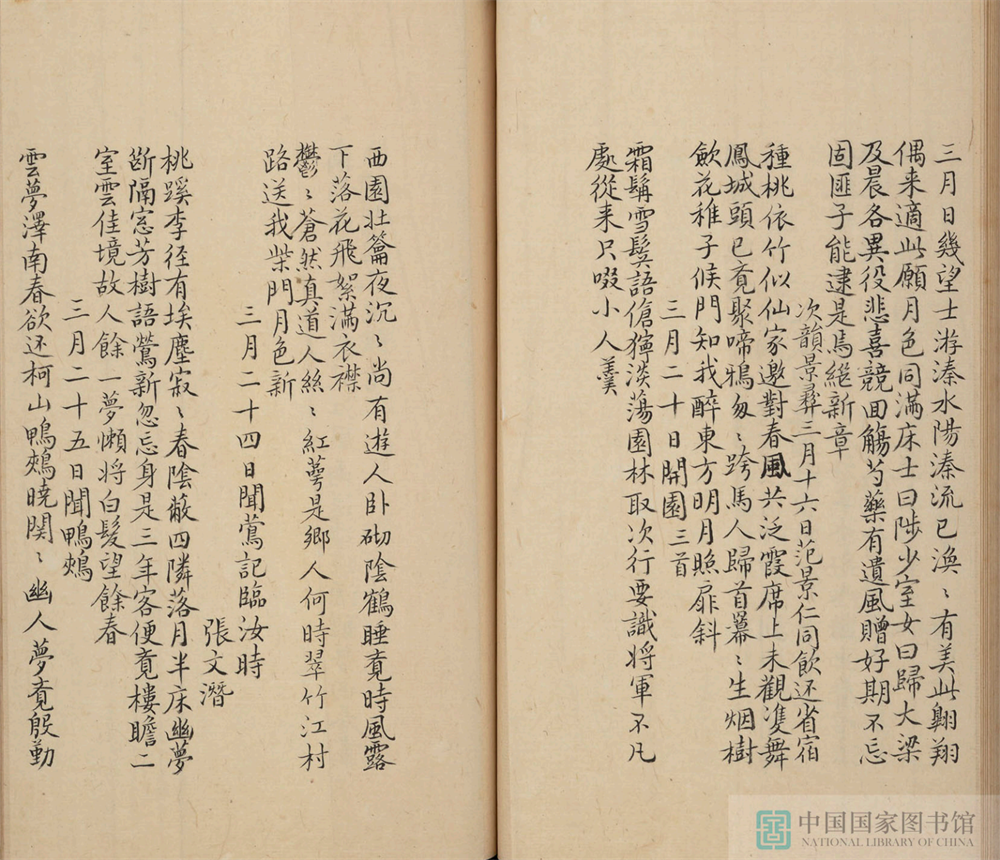 三月日幾望士游溱水陽溱流已渙〻有美此翺翔
偶来適此願月色同滿床士曰陟少室女曰歸大梁
及晨各異役悲喜競回觴芍藥有遺風贈好期不忘
固匪子能逮是焉繼新章
次韻景彝三月十六日范景仁同飲还省宿
種桃依竹似仙家邀對春風共泛霞席上未觀雙舞
鳳城頭已覔聚啼鴉匆〻跨馬人歸首幕〻生烟樹
歛花稚子候門知我醉東方明月照扉斜
三月二十日開園三首
霜髯雪鬓語傖獰淡蕩園林取次行要識將軍不凡
處從来只啜小人羹
西園壯籥夜沉〻尚有遊人卧砌陰鶴睡覔時風露
下落花飛絮滿衣襟
鬱〻蒼然真道人絲〻紅萼是鄉人何時翠竹江村
路送我柴門月色新
三月二十四日聞鶯記臨汝時
張文潛
桃蹊李徑有埃塵寂〻春陰蔽四隣落月半床幽夢
斷隔窓芳樹語鶯新忽忘身是三年客便覔樓瞻二
室雲佳境故人餘一夢懶將白髮望餘春
三月二十五日聞鴨鵊
雲夢澤南春欲还柯山鴨鵊曉関〻幽人夢覔殷勤
中国国家图书馆
NATIONAL LIBRARY OF CHINA